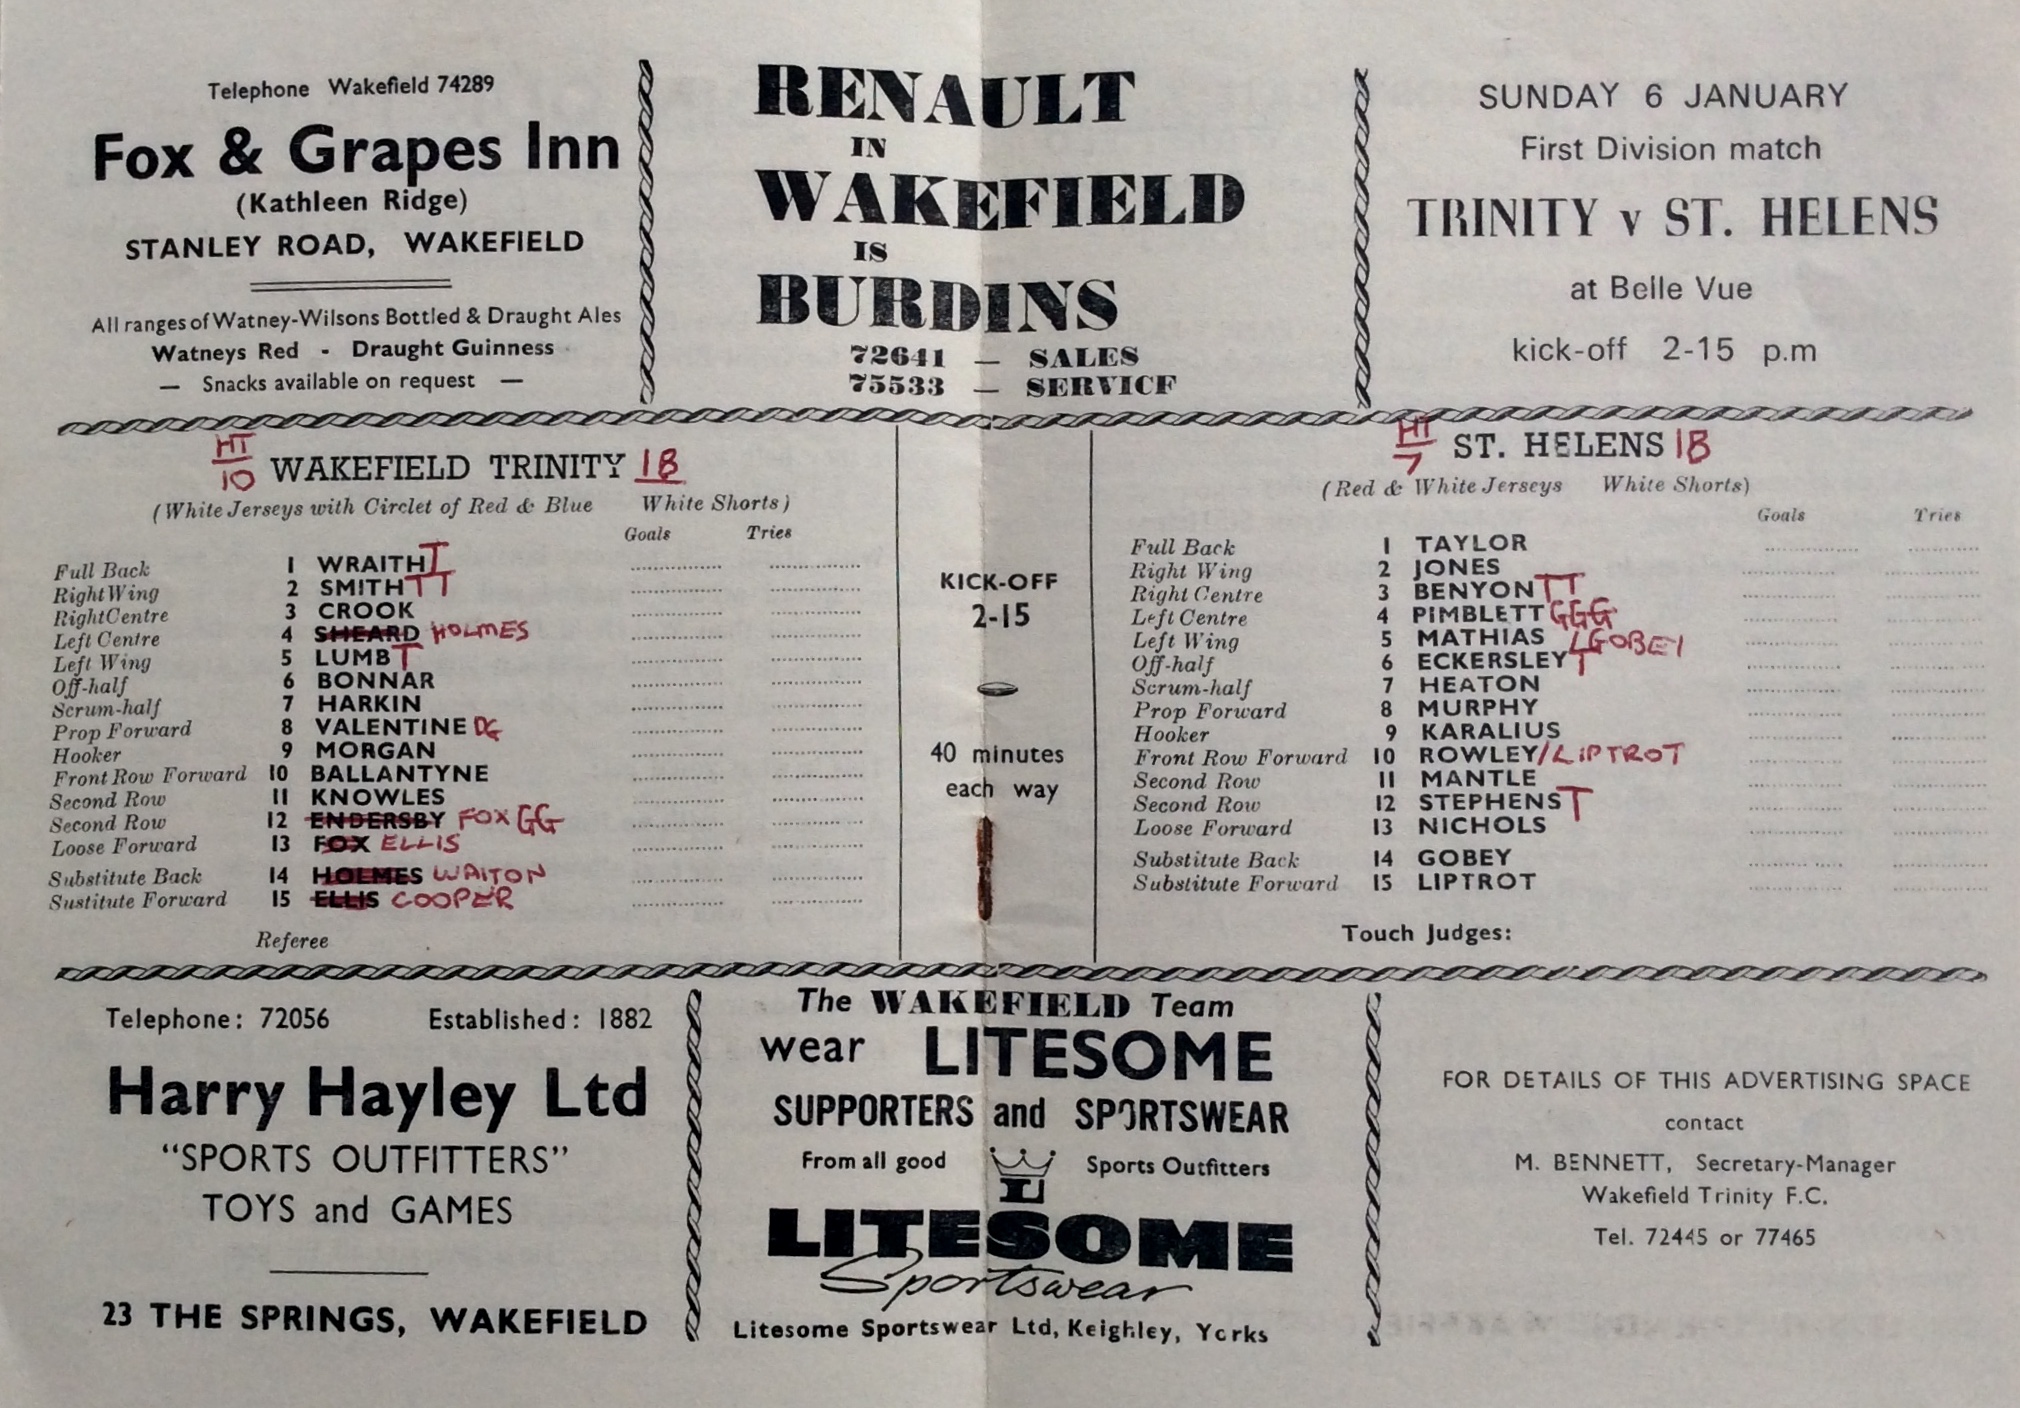 Telephone Wakefield 74289
Fox & Grapes Inn
(Kathleen Ridge)
STANLEY ROAD, WAKEFIELD
All ranges of Watney-Wilsons Bottled & Draught Ales
Watneys Red - Draught Guinness
— Snacks available on request —
RENAULT
IN
WAKEFIELD
IS
BURDINS
72641 — SALES
75533 — SERVICE
SUNDAY 6 JANUARY
First Division match
TRINITY v ST. HELENS
at Belle Vue
kick-off 2-15 p.m
HT
10 WAKEFIELD TRINITY 18
(White Jerseys with Circlet of Red & Blue White Shorts)
Goals Tries
Full Back 1 WRAITH T
Right Wing 2 SMITH TT
Right Centre 3 CROOK
Left Centre 4 SHEARD HOLMES
Left Wing 5 LUMB T
Off-half 6 BONNAR
Scrum-half 7 HARKIN
Prop Forward 8 VALENTINE DG
Hooker 9 MORGAN
Front Row Forward 10 BALLANTYNE
Second Row 11 KNOWLES
Second Row 12 ENDERSBY FOX GG
Loose Forward 13 FOX ELLIS
Substitute Back 14 HOLMES WAITON
Sustitute Forward 15 ELLIS COOPER
Referee
KICK-OFF
2-15
40 minutes
each way
HT
7 ST. HELENS 18
(Red & White Jerseys White Shorts)
Goals Tries
Full Back 1 TAYLOR
Right Wing 2 JONES
Right Centre 3 BENYON TT
Left Centre 4 PIMBLETT GGG
Left Wing 5 MATHIAS /GOBEY
Off-half 6 ECKERSLEY T
Scrum-half 7 HEATON
Prop Forward 8 MURPHY
Hooker 9 KARALIUS
Front Row Forward 10 ROWLEY/LIPTROT
Second Row 11 MANTLE
Second Row 12 STEPHENS T
Loose Forward 13 NICHOLS
Substitute Back 14 GOBEY
Substitute Forward 15 LIPTROT
Touch Judges:
Telephone: 72056 Established: 1882
Harry Hayley Ltd
"SPORTS OUTFITTERS"
TOYS and GAMES
23 THE SPRINGS, WAKEFIELD
The WAKEFIELD Team
wear LITESOME
SUPPORTERS and SPORTSWEAR
From all good Sports Outfitters
L
LITESOME
Sportswear
Litesome Sportswear Ltd, Keighley, Yorks
FOR DETAILS OF THIS ADVERTISING SPACE
contact
M. BENNETT, Secretary-Manager
Wakefield Trinity F.C.
Tel. 72445 or 77465